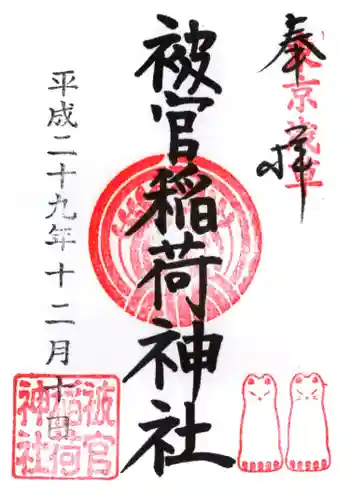 奉拝
東京浅草
被官稲荷神社
平成二十九年十二月十日
被官
稲荷
神社